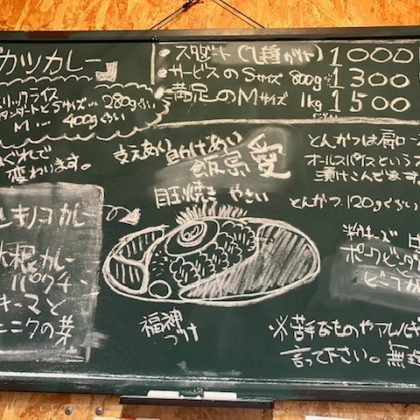 カツカレー
・スタンダード(1種がけ) 1000
・サービスのSサイズ 800g 1300
・満足のMサイズ 1kg 1500
ガーリックライス
スタンダードとSサイズ… 280gくらい
M … 400gくらい
変わります。
支えあう 助けあい
飯高 愛
目玉焼き やさい
とんかつは肩ロース
オールスパイスという
漬けこんであります
とんかつ 120gくらい
粉チーズ
キノコカレー
大根とカレー
パクチー
キーマと
ニンニクの菜
福神
つけ
※苦手なものやアレルギー
言って下さい。無